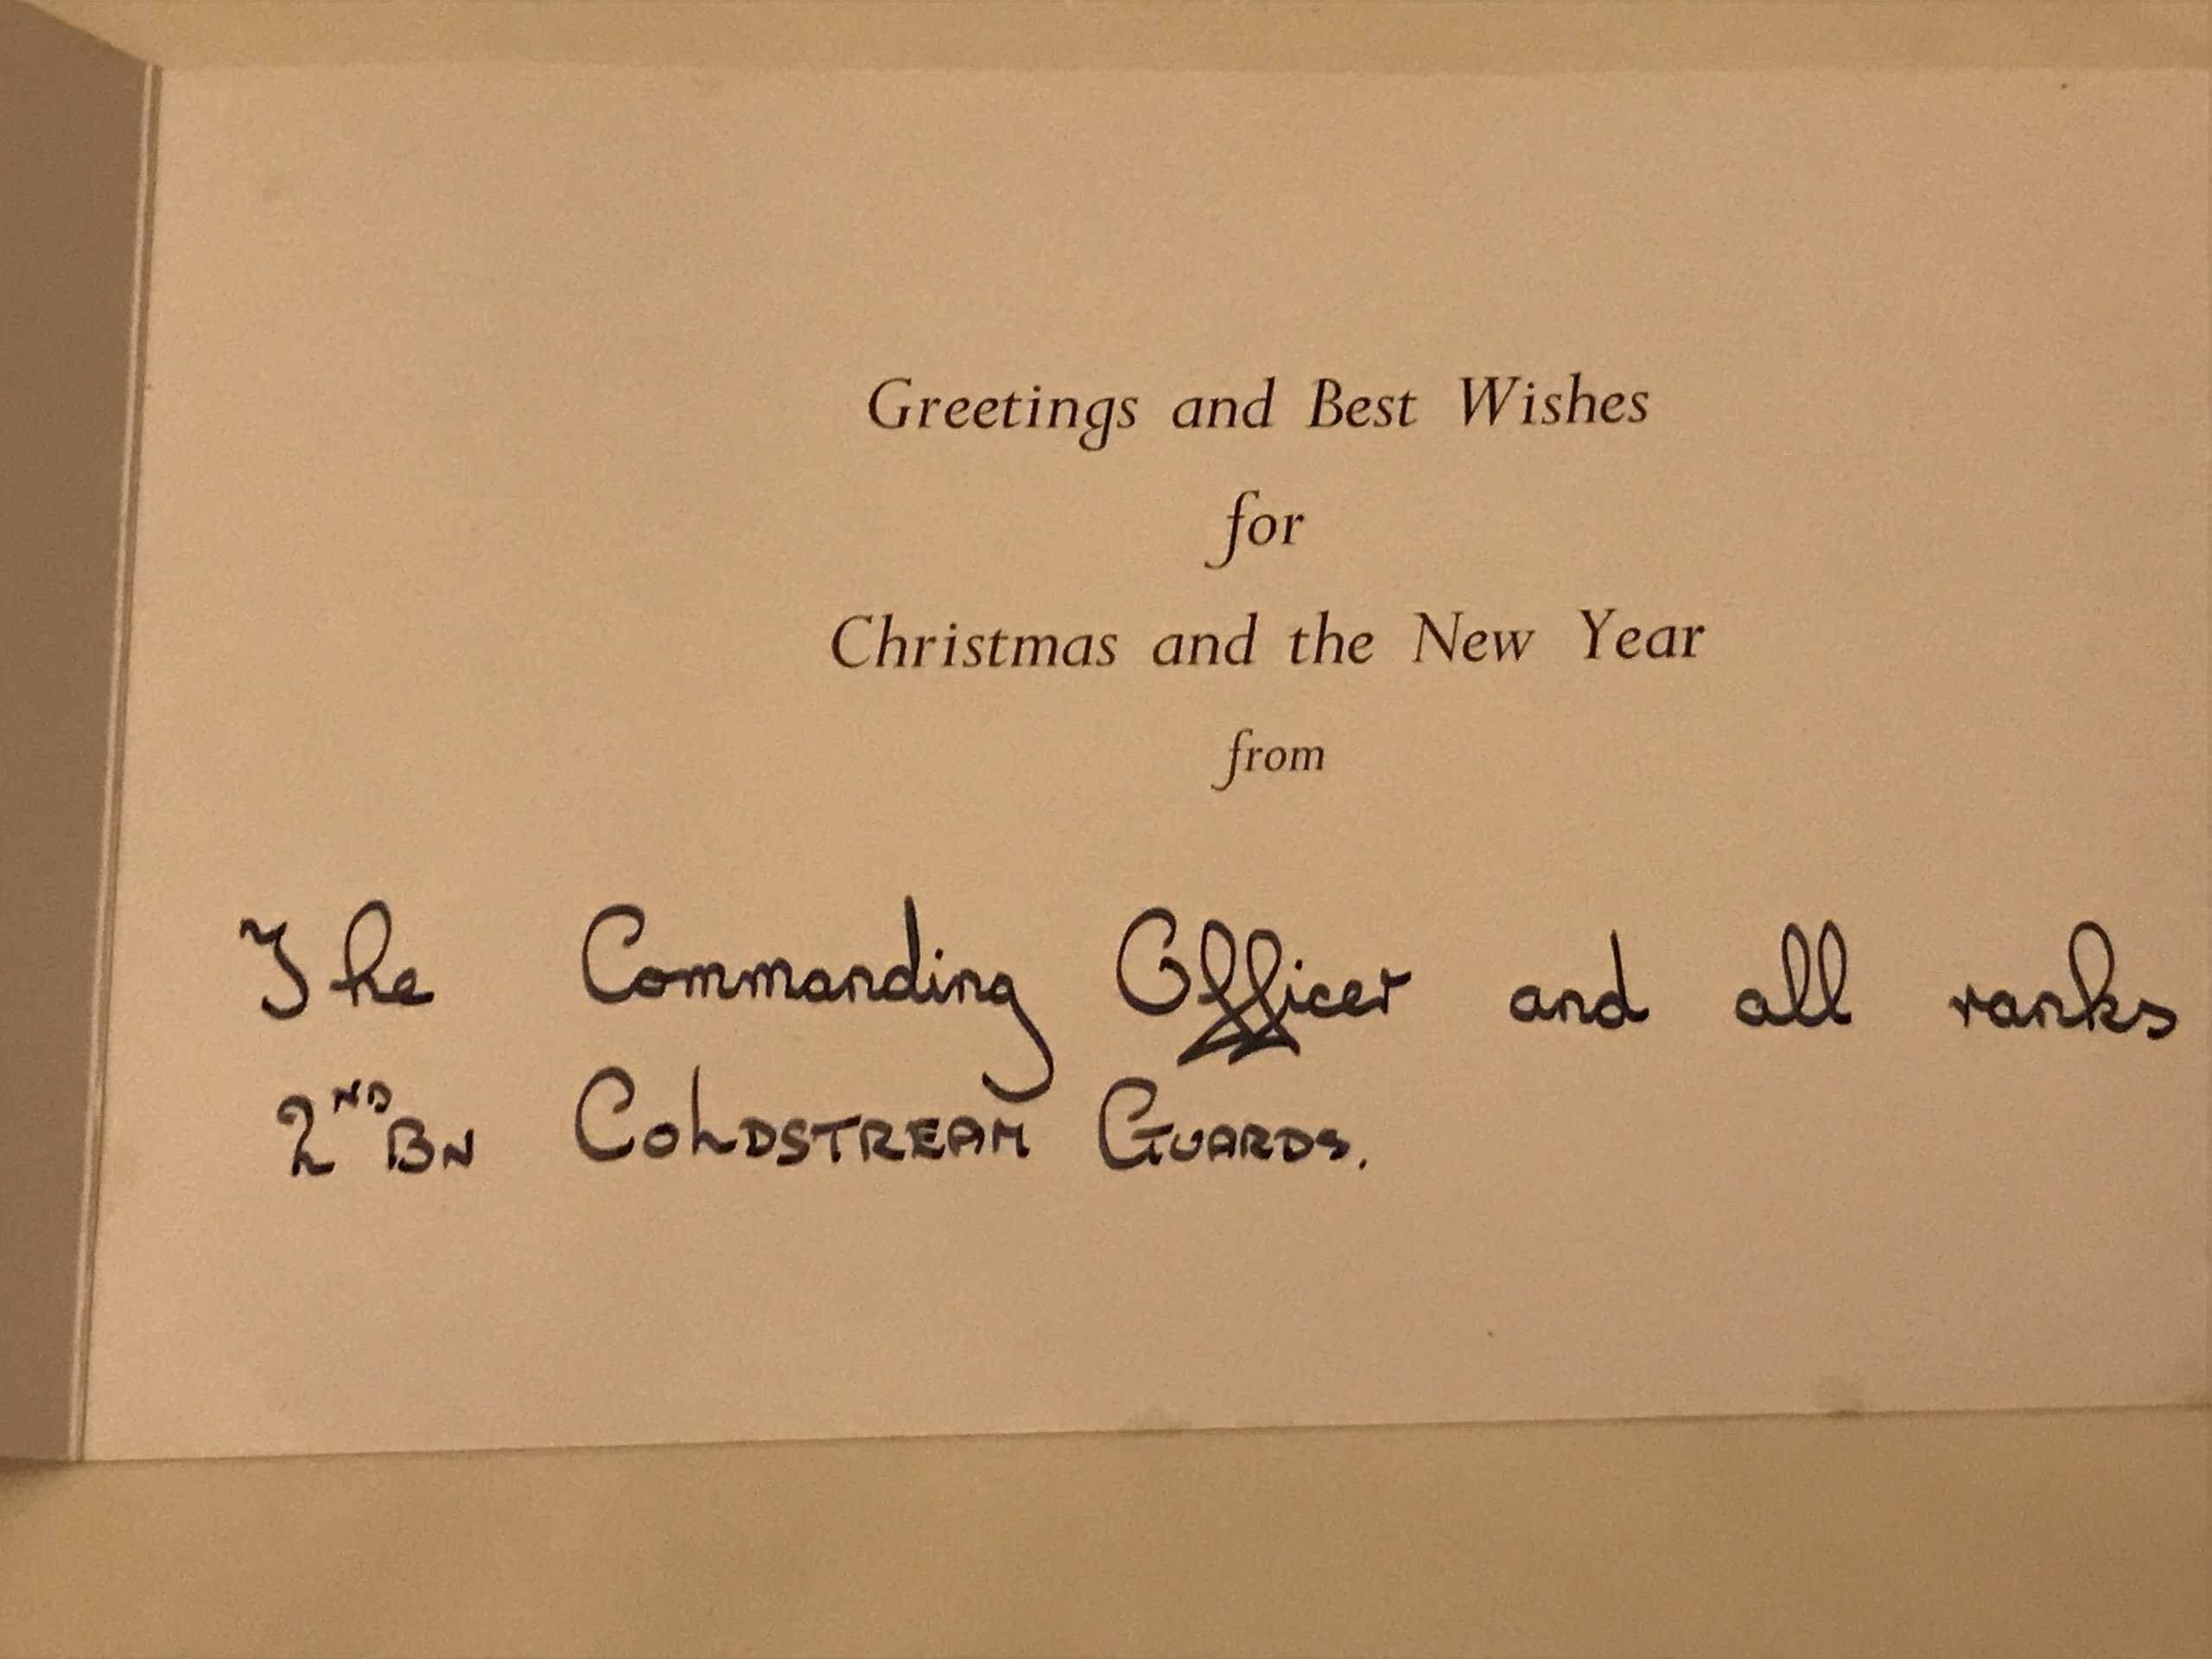 Greetings and Best Wishes
for
Christmas and the New Year
from
The Commanding Officer and all ranks
2ND BN COLDSTREAM GUARDS.